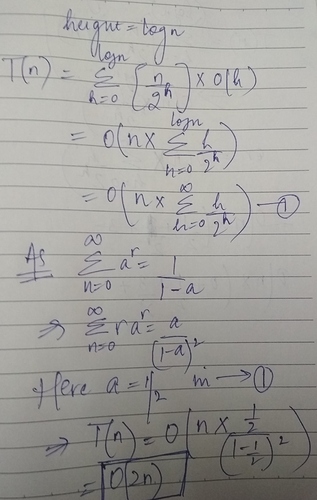 height = logn
T(n) = logn Σ h=0 [n/2^h] × O(h)
= O(n × logn Σ n=0 h/2^h)
= O(n × ∞ Σ h=0 h/2^h) — ①
As ∞ Σ n=0 a^r = 1/(1-a)
⇒ ∞ Σ n=0 r a^r = a/(1-a)^2
Here a = 1/2 in → ①
⇒ T(n) = O(n × (1/2)/(1-1/2)^2)
= O(2n)